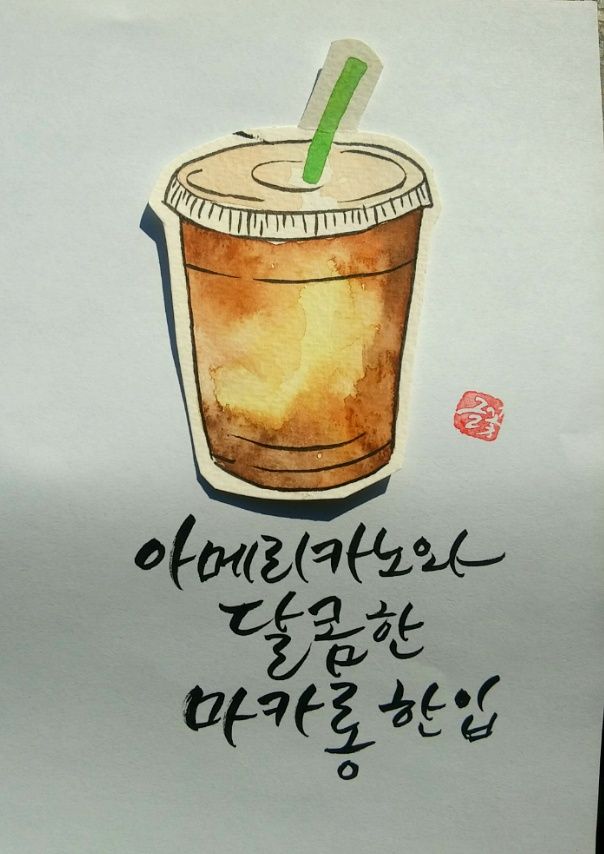 아메리카노와
달콤한
마카롱 한입